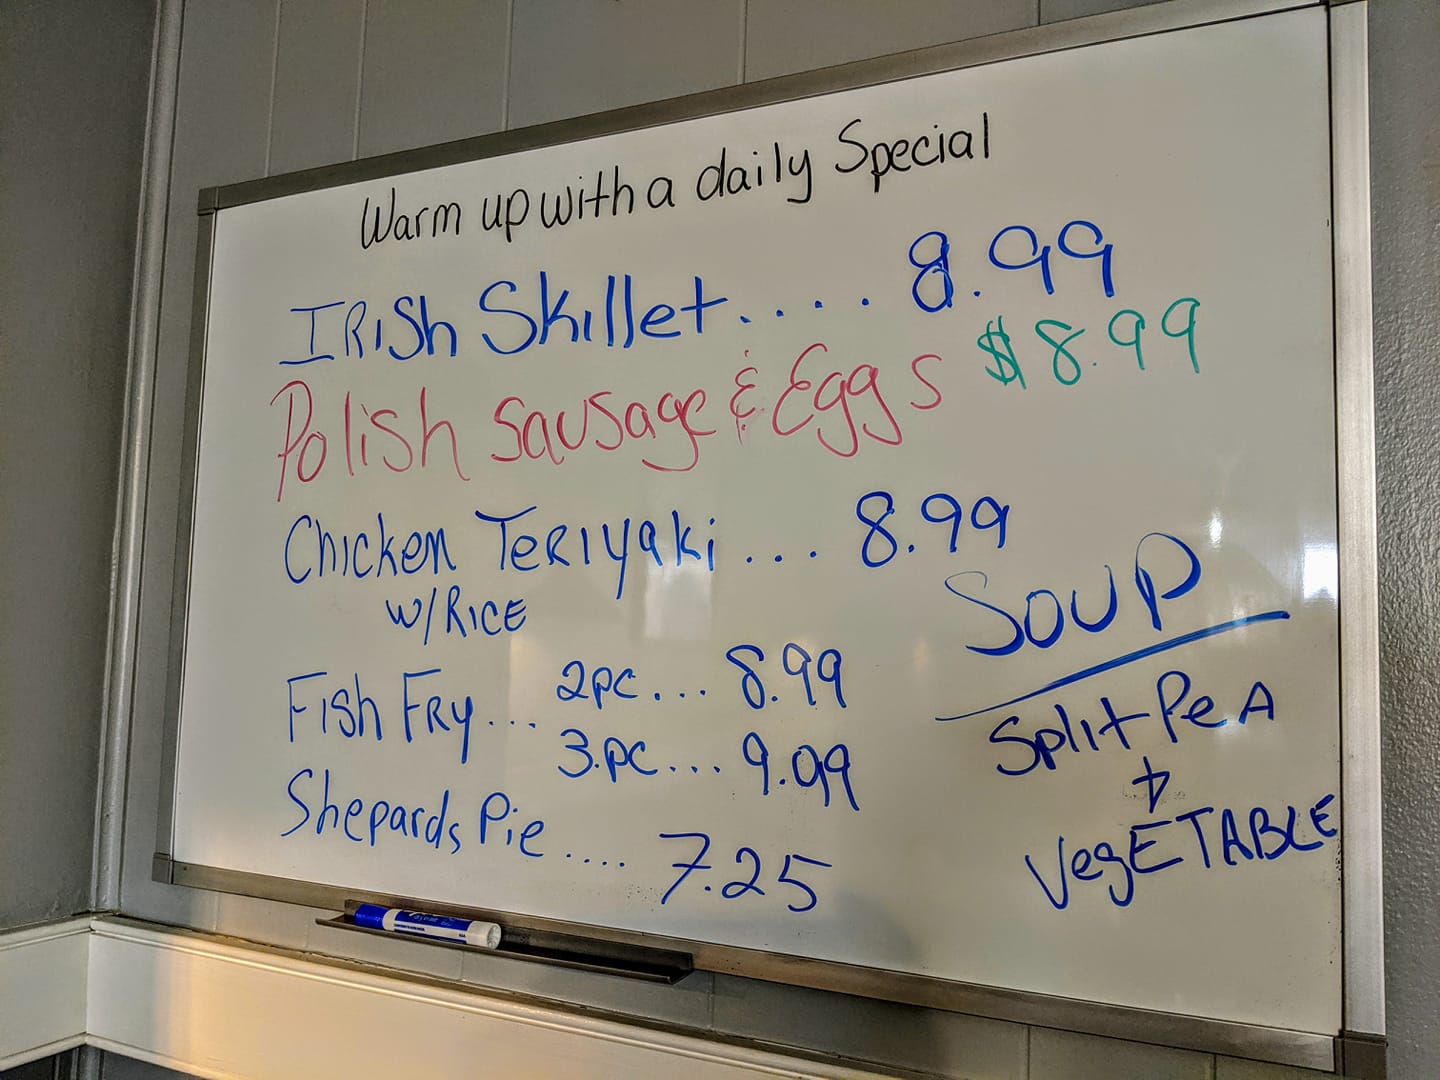 Warm up with a daily Special
IRish Skillet.... 8.99
Polish Sausage & Eggs $8.99
Chicken Teriyaki... 8.99
w/Rice
Fish Fry... 2pc... 8.99
3.pc... 9.99
Shepards Pie.... 7.25
Soup
Split Pea
+
VegETABLE